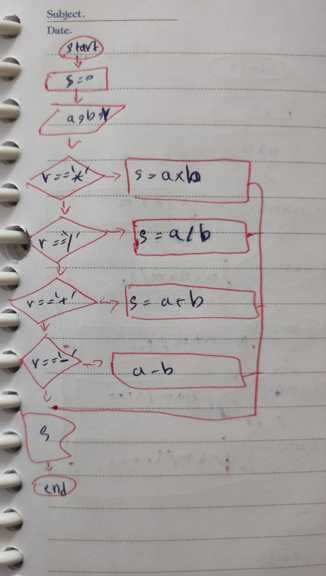 Subject.
Date.
start
s=0
a,b,r
r=='*'
s=a×b
r=='/'
s=a/b
r=='+'
s=a+b
r=='-'
a-b
s
end